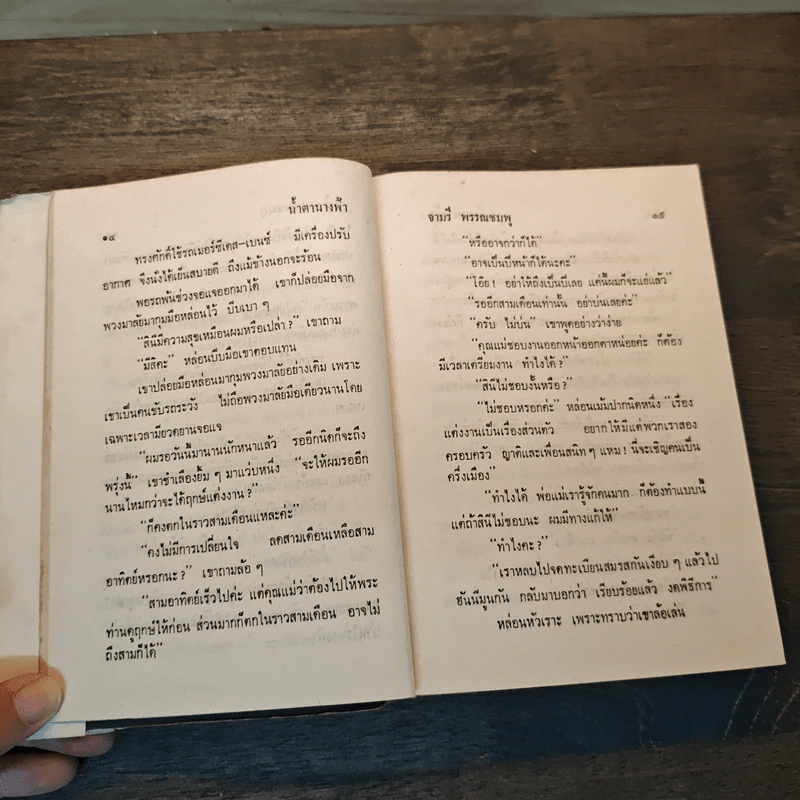 น้ำตานางฟ้า
๑๔
ทรงศักดิ์ใช้รถเมอร์ซีเดส-เบนซ์ มีเครื่องปรับ
อากาศ จึงนั่งได้เย็นสบายดี ถึงแม้ข้างนอกจะร้อน
พอรถพ้นช่วงจอแจออกมาได้ เขาก็ปล่อยมือจาก
พวงมาลัยมากุมมือหล่อนไว้ บีบเบา ๆ
“สินีมีความสุขเหมือนผมหรือเปล่า?” เขาถาม
“มีสิคะ” หล่อนบีบมือเขาตอบแทน
เขาปล่อยมือหล่อนมากุมพวงมาลัยอย่างเดิม เพราะ
เขาเป็นคนขับรถระวัง ไม่ถือพวงมาลัยมือเดียวนานโดย
เฉพาะเวลามียวดยานจอแจ
“ผมรอวันนี้มานานนักหนาแล้ว รออีกนิดก็จะถึง
พรุ่งนี้” เขาชำเลืองยิ้ม ๆ มาแวบหนึ่ง “จะให้ผมรออีก
นานไหมกว่าจะได้ฤกษ์แต่งงาน?”
“ก็คงตกในราวสามเดือนแหละค่ะ”
“คงไม่มีการเปลี่ยนใจ ลดสามเดือนเหลือสาม
อาทิตย์หรอกนะ?” เขาถามล้อ ๆ
“สามอาทิตย์เร็วไปค่ะ แต่คุณแม่ว่าต้องไปให้พระ
ท่านดูฤกษ์ให้ก่อน ส่วนมากก็ตกในราวสามเดือน อาจไม่
ถึงสามก็ได้”
จามรี พรรณชมพู
๑๕
“หรืออาจกว่าก็ได้”
“อาจเป็นปีหน้าก็ได้นะคะ”
“โอ๊ย! อย่าให้ถึงเป็นปีเลย แค่นี้ผมก็จะแย่แล้ว”
“รออีกสามเดือนเท่านั้น อย่าบ่นเลยค่ะ”
“ครับ ไม่บ่น” เขาพูดอย่างว่าง่าย
“คุณแม่ชอบงานออกหน้าออกตาหน่อยค่ะ ก็ต้อง
มีเวลาเตรียมงาน ทำไงได้?”
“สินีไม่ชอบงั้นหรือ?”
“ไม่ชอบหรอกค่ะ” หล่อนเม้มปากนิดหนึ่ง “เรื่อง
แต่งงานเป็นเรื่องส่วนตัว อยากให้มีแต่พวกเราสอง
ครอบครัว ญาติและเพื่อนสนิท ๆ แหม! นี่จะเชิญคนเป็น
ครึ่งเมือง”
“ทำไงได้ พ่อแม่เรารู้จักคนมาก ก็ต้องทำแบบนี้
แต่ถ้าสินีไม่ชอบนะ ผมมีทางแก้ให้”
“ทำไงคะ?”
“เราหลบไปจดทะเบียนสมรสกันเงียบ ๆ แล้วไป
ฮันนีมูนกัน กลับมาบอกว่า เรียบร้อยแล้ว งดพิธีการ”
หล่อนหัวเราะ เพราะทราบว่าเขาล้อเล่น